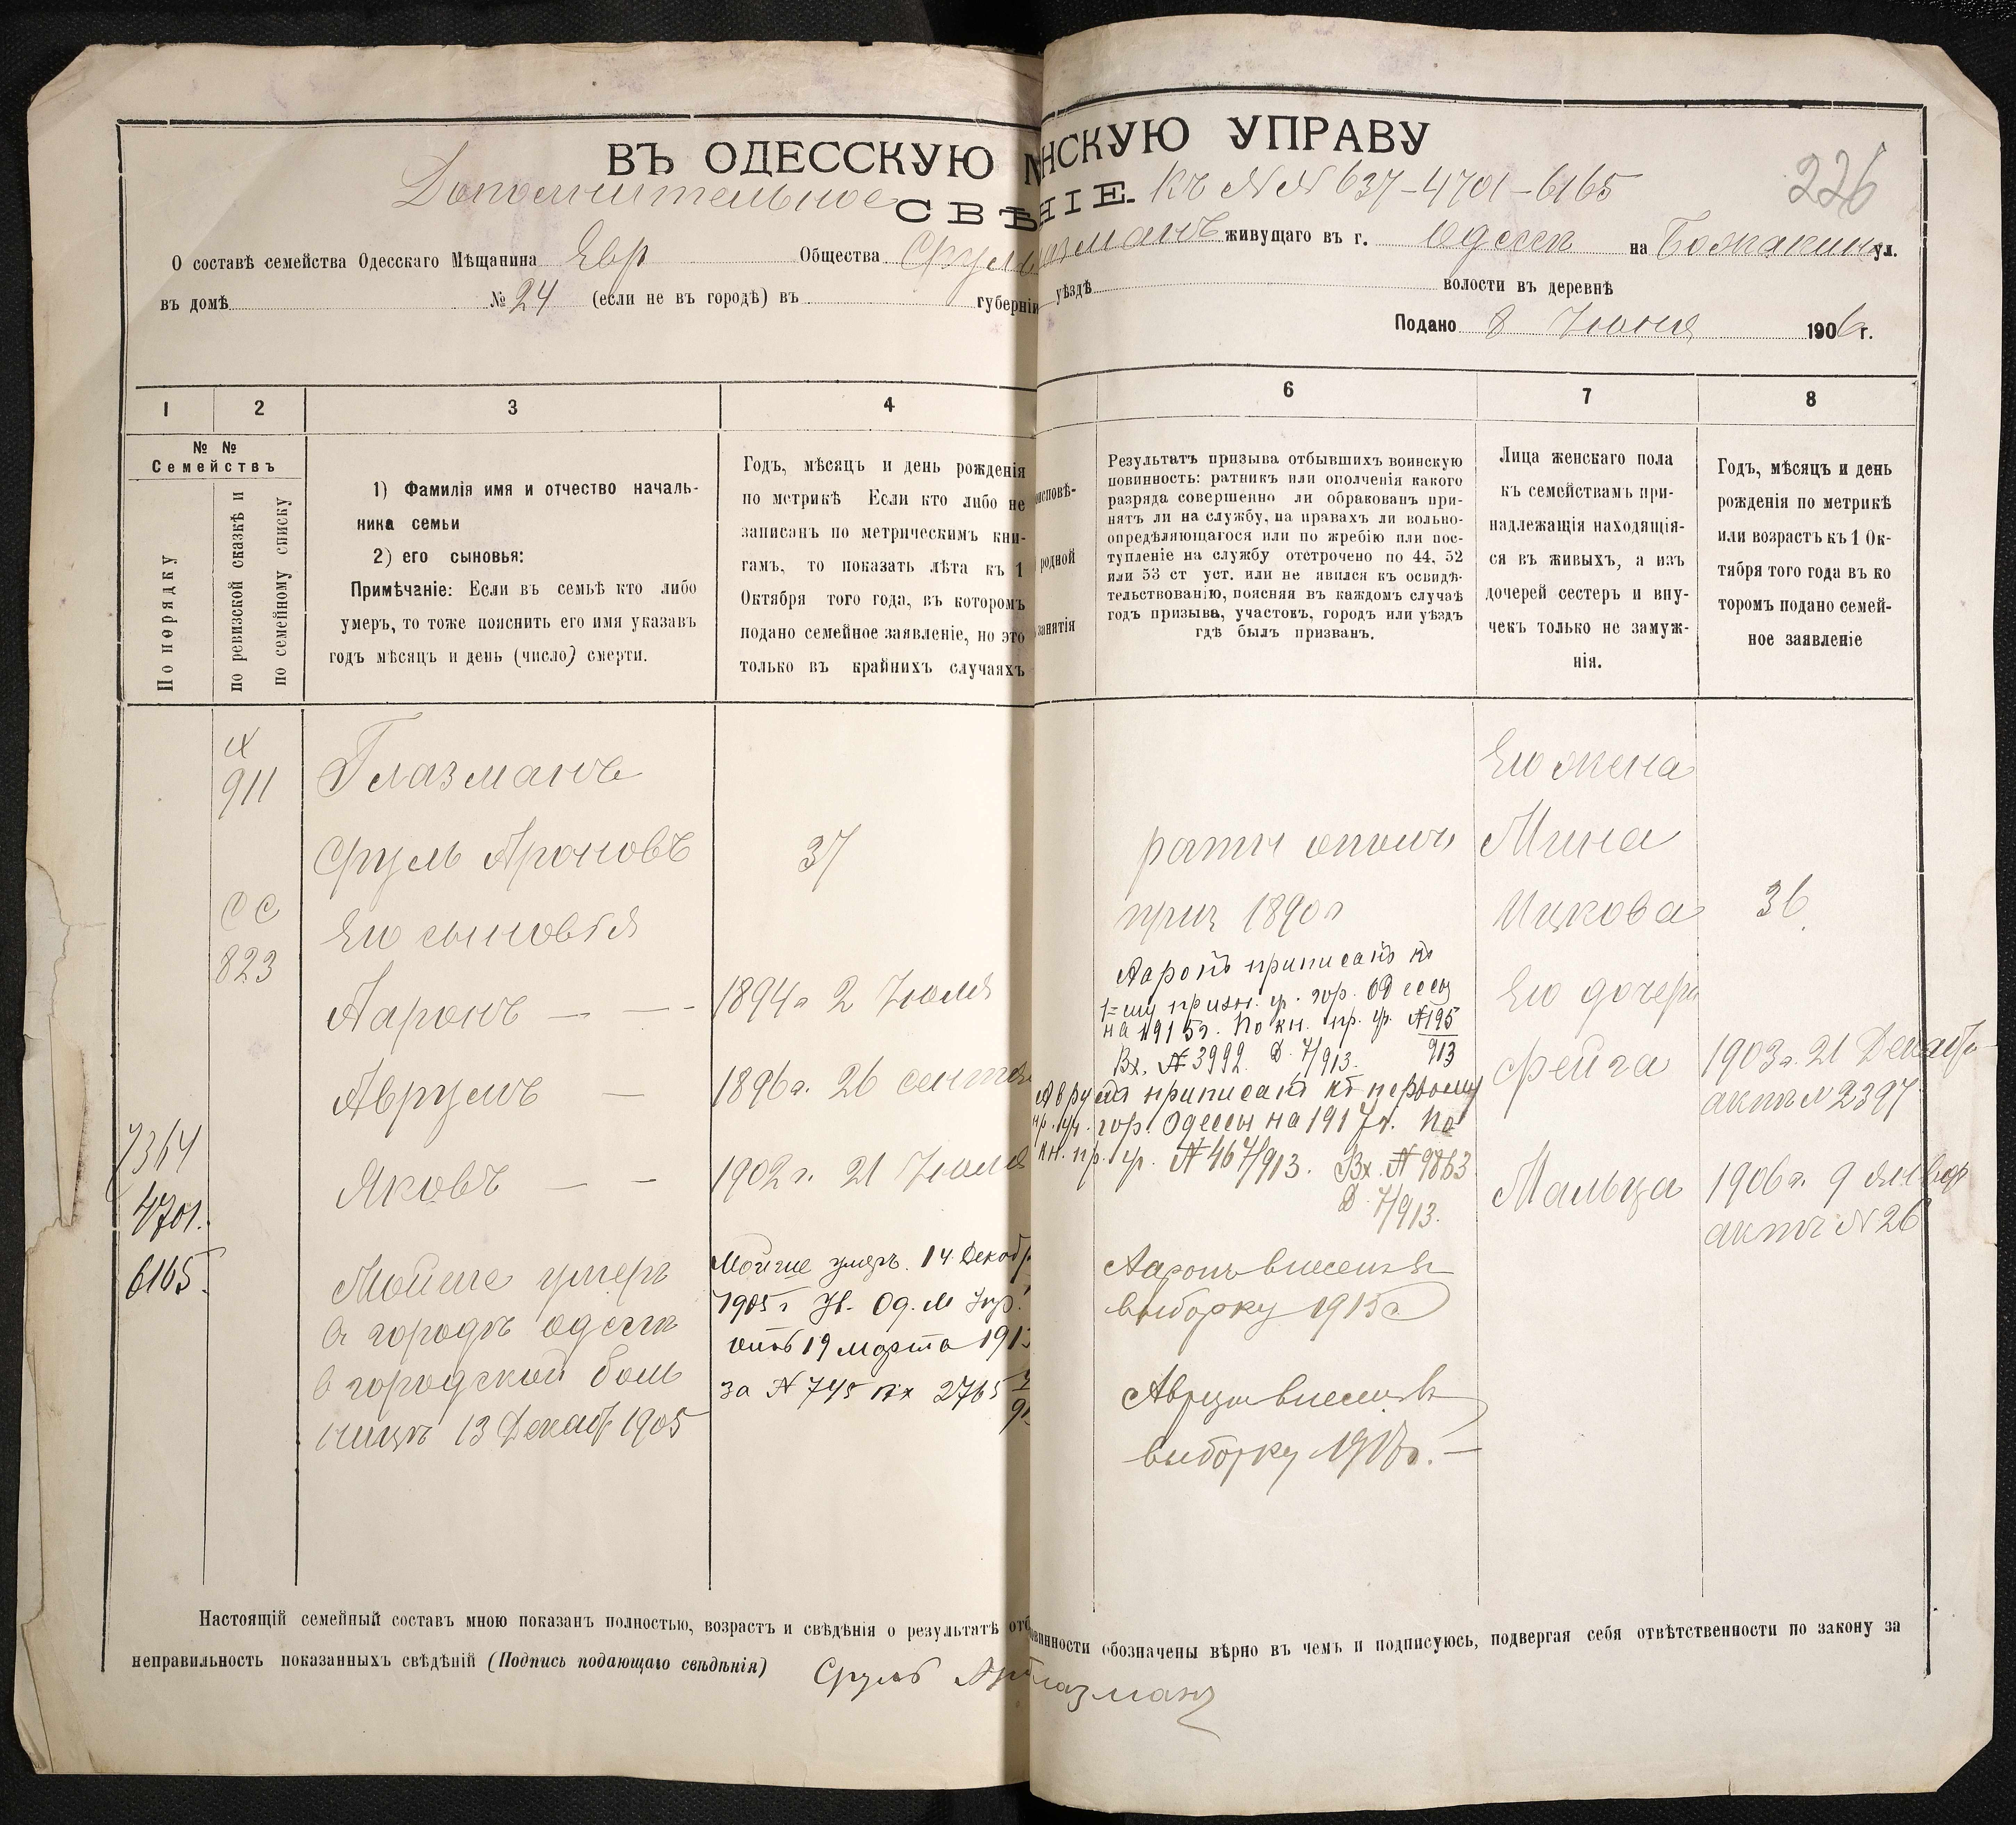 ВЪ ОДЕССКУЮ М НСКУЮ УПРАВУ
Дополнительное СВѢ НІЕ. Къ №№ 637-4701-6165
226
О составѣ семейства Одесскаго Мѣщанина Евр Общества Сруля Глазманъ живущаго въ г. Одессѣ на ул.
въ домѣ № 24 (если не въ городѣ) въ губерніи уѣздѣ волости въ деревнѣ
Подано 8 Іюня 1906 г.
1 2 3 4 6 7 8
№ №
Семействъ
По порядку
по ревизской сказкѣ и
по семейному списку
1) Фамилія имя и отчество началь-
ника семьи
2) его сыновья:
Примѣчаніе: Если въ семьѣ кто либо
умеръ, то тоже пояснить его имя указавъ
годъ мѣсяцъ и день (число) смерти.
Годъ, мѣсяцъ и день рожденія
по метрикѣ Если кто либо не
записанъ по метрическимъ кни-
гамъ, то показать лѣта къ 1
Октября того года, въ которомъ
подано семейное заявленіе, но это
только въ крайнихъ случаяхъ
исповѣ-
родной
занятія
Результатъ призыва отбывшихъ воинскую
повинность: ратникъ или ополченія какого
разряда совершенно ли обракованъ при-
нятъ ли на службу, на правахъ ли вольно-
опредѣляющагося или по жребію или пос-
тупленіе на службу отстрочено по 44, 52
или 53 ст уст. или не явился къ освидѣ-
тельствованію, поясняя въ каждомъ случаѣ
годъ призыва, участокъ, городъ или уѣздъ
гдѣ былъ призванъ.
Лица женскаго пола
къ семействамъ при-
надлежащія находящія-
ся въ живыхъ, а изъ
дочерей сестеръ и вну-
чекъ только не замуж-
нія.
Годъ, мѣсяцъ и день
рожденія по метрикѣ
или возрастъ къ 1 Ок-
тября того года въ ко
торомъ подано семей-
ное заявленіе
911
823
7364
4701.
6165.
Глазманъ
Сруль Ароновъ
Его сыновья
Ааронъ — — -
Аврумъ —
Яковъ — —
Мойше умеръ
въ городѣ одессѣ
в городской боль
ницѣ 13 Декаб 1905
37
1894г 2 Іюля
1896г. 26 сентя
1902г. 21 Іюля
Мойше умеръ. 14 Декаб
1905 г Ув. Од. М Упр.
отъ 19 марта 191
за № 745 Вх 2765
ратн ополч
приз 1890г
Ааронъ приписанъ къ
1-му призн. у. гор. Одессы
на 1915г. По кн. пр. уч. №195/913
Вх. № 3992. Д. 7/913.
Аврумъ приписанъ къ первому
пр. уч. гор. Одессы на 1917г. По
кн. пр. уч. № 467/913. Вх. № 9863
Д. 7/913.
Ааронъ внесенъ въ
выборку 1915г
Аврумъ внесенъ въ
выборку 1917г. —
Его жена
Мина
Ицкова
Его дочери
Фейга
Мальца
36
1903г. 21 Декабр
актъ №2397
1906г. 9 Январ
актъ №26
Настоящій семейный составъ мною показанъ полностью, возрастъ и свѣдѣнія о результатѣ отб винности обозначены вѣрно въ чемъ и подписуюсь, подвергая себя отвѣтственности по закону за
неправильность показанныхъ свѣдѣній (Подпись подающаго свѣдѣнія) Сруль Ар Глазманъ